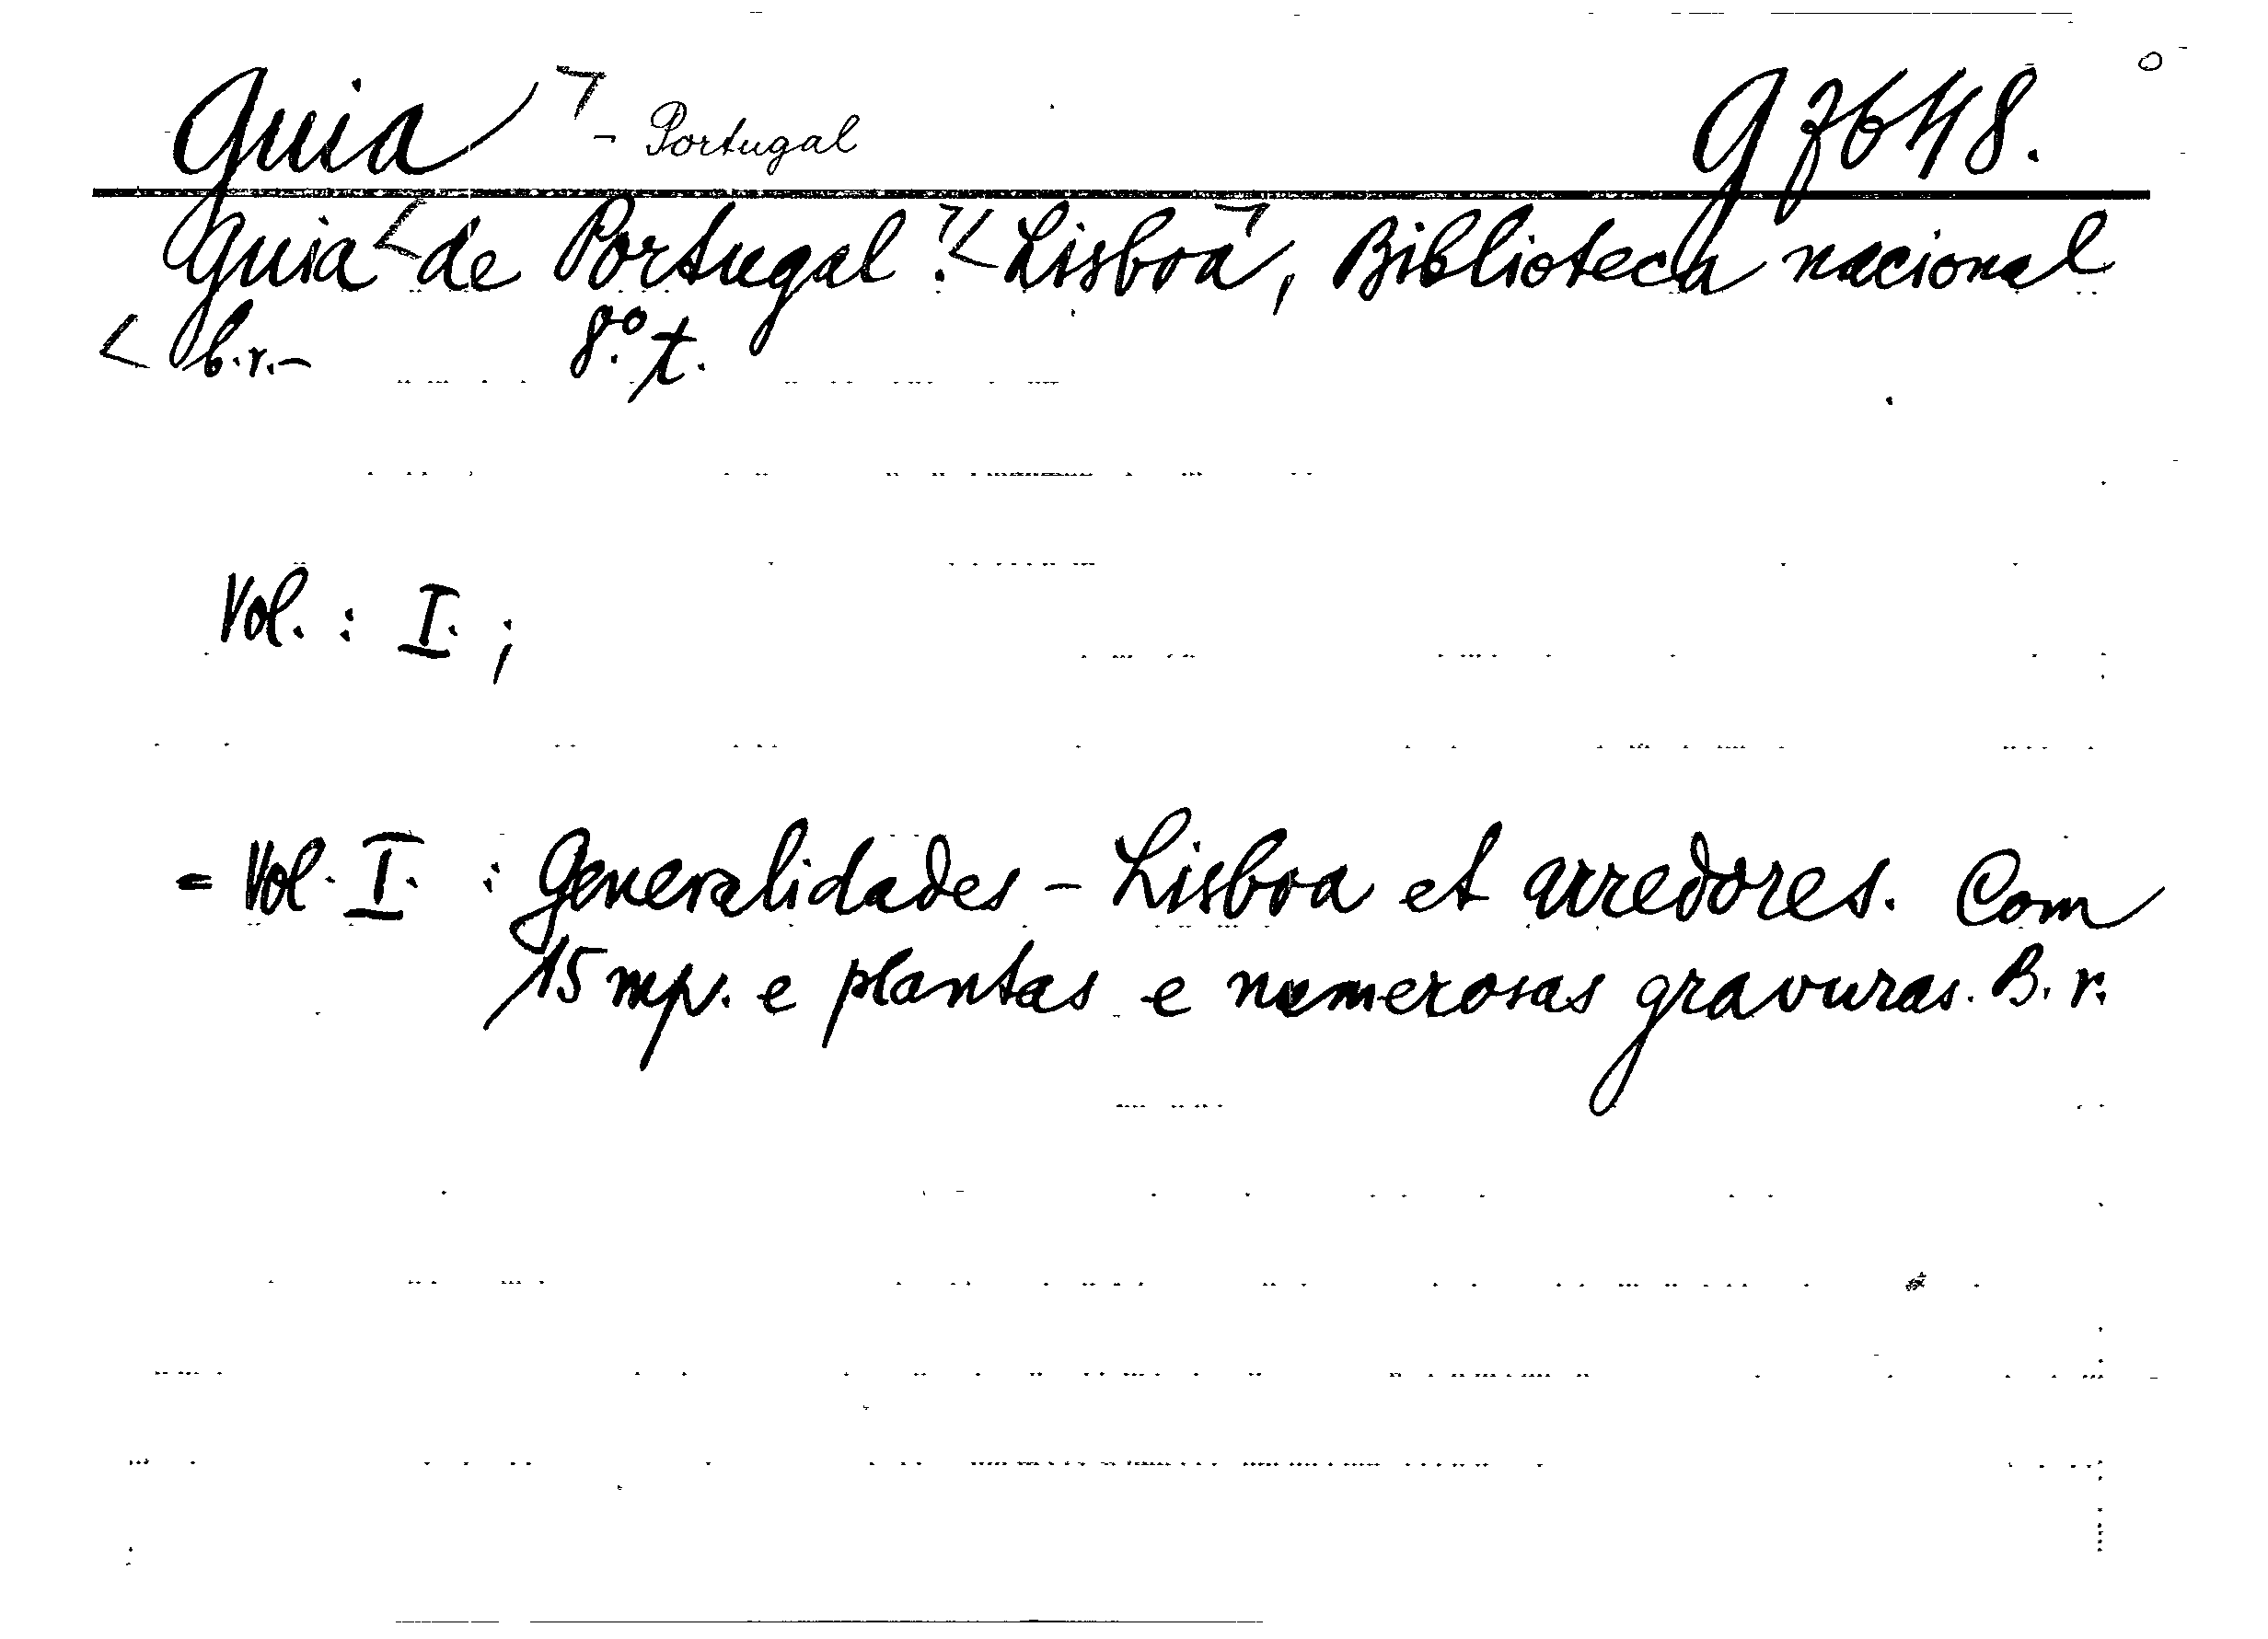 Guia ¬ - Portugal G 7648.
Guia < de Portugal. ¬ < Lisboa ¬, Biblioteca nacional
< b.r.- 8.° t.
Vol. : I. ;
= Vol. I. : Generalidades - Lisboa et arredores. Com
15 mp. e plantas e numerosas gravuras. B. r.